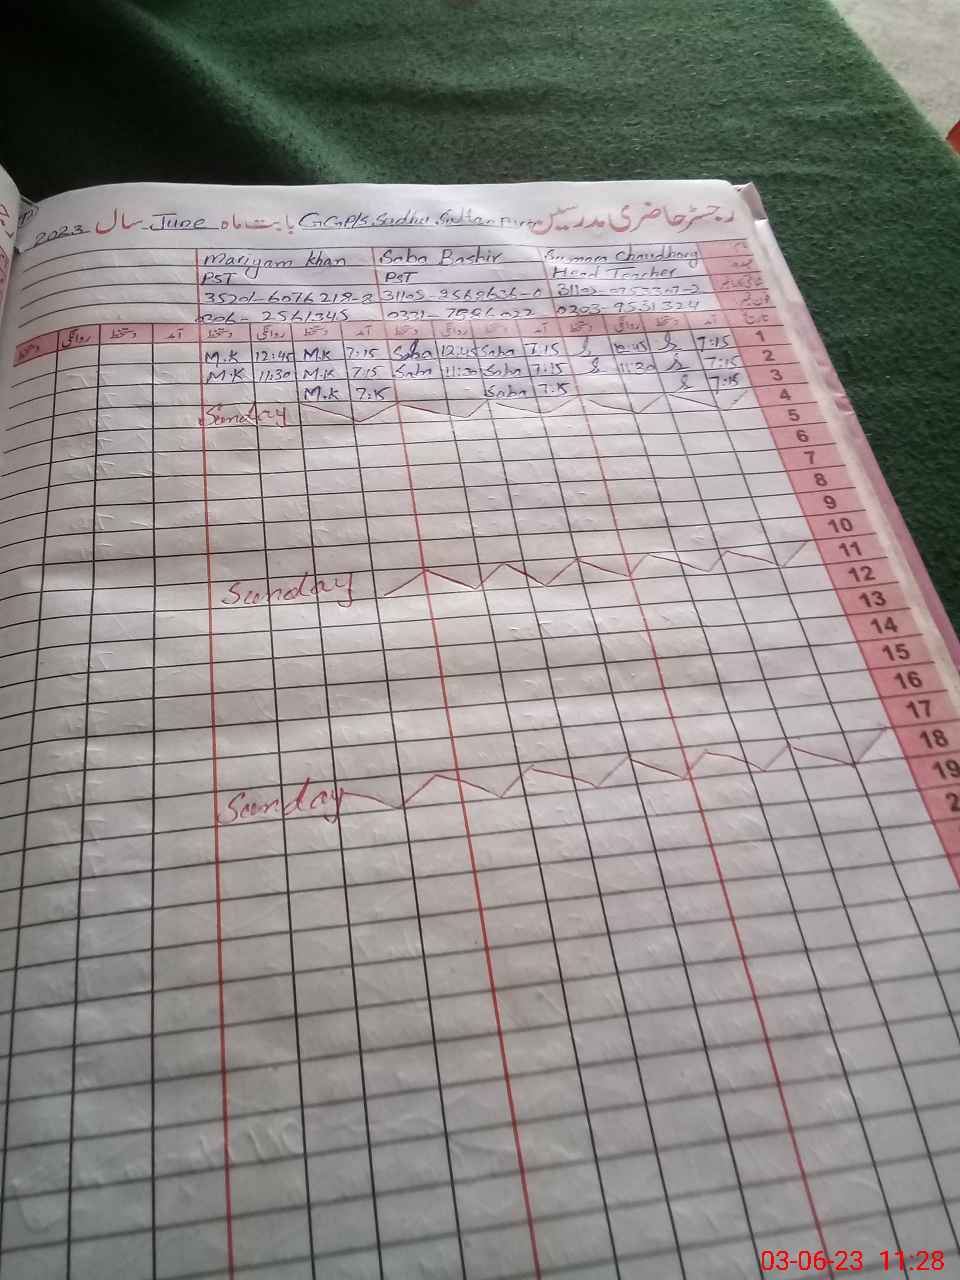 رجسٹر حاضری مدرسین GGP/S Sadhu Sultan Pur بابت ماہ June سال 2023
Mariyam Khan Saba Bashir Sumara Chaudhary
PST PST Head Teacher
تاریخ آمد دستخط روانگی دستخط آمد دستخط روانگی دستخط آمد دستخط روانگی دستخط آمد دستخط روانگی دستخط
M.K 12:45 M.K 7:15 Saba 12:45 Saba 7:15 S 12:45 S 7:15 1
M.K 11:30 M.K 7:15 Saba 11:30 Saba 7:15 S 11:30 S 7:15 2
M.K 7:15 Saba 7:15 S 7:15 3
Sunday 4
5
6
7
8
9
10
Sunday 11
12
13
14
15
16
17
Sunday 18
19
03-06-23 11:28